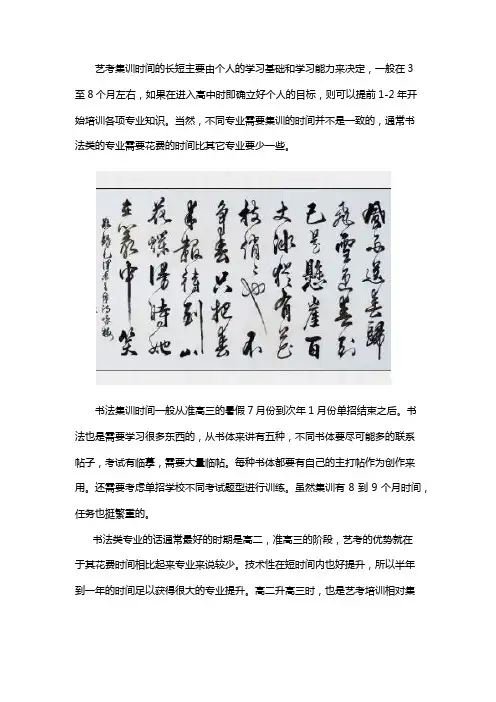 艺考集训时间的长短主要由个人的学习基础和学习能力来决定，一般在3
至8个月左右，如果在进入高中时即确立好个人的目标，则可以提前1-2年开
始培训各项专业知识。当然，不同专业需要集训的时间并不是一致的，通常书
法类的专业需要花费的时间比其它专业要少一些。
風雨送春歸
飛雪迎春到
已是懸崖百
丈冰猶有花
枝俏〻也不
争春只把春
来報待到山
花爛漫時她
在叢中笑
书法集训时间一般从准高三的暑假7月份到次年1月份单招结束之后。书
法也是需要学习很多东西的，从书体来讲有五种，不同书体要尽可能多的联系
帖子，考试有临摹，需要大量临帖。每种书体都要有自己的主打帖作为创作来
用。还需要考虑单招学校不同考试题型进行训练。虽然集训有8到9个月时间，
任务也挺繁重的。
书法类专业的话通常最好的时期是高二，准高三的阶段，艺考的优势就在
于其花费时间相比起来专业来说较少。技术性在短时间内也好提升，所以半年
到一年的时间足以获得很大的专业提升。高二升高三时，也是艺考培训相对集